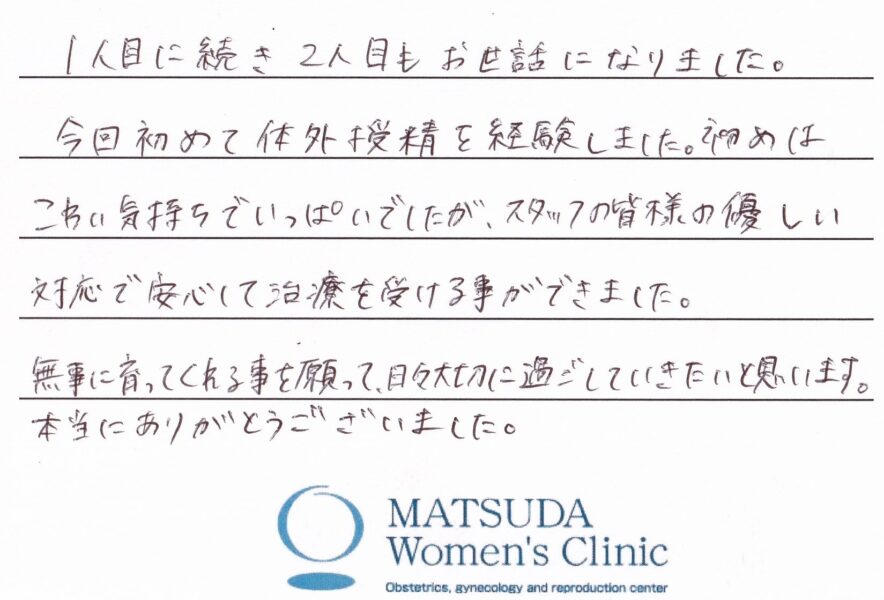 1人目に続き2人目もお世話になりました。
今回初めて体外授精を経験しました。初めは
こわい気持ちでいっぱいでしたが、スタッフの皆様の優しい
対応で安心して治療を受ける事ができました。
無事に育ってくれる事を願って、日々大切に過ごしていきたいと思います。
本当にありがとうございました。
MATSUDA
Women's Clinic
Obstetrics, gynecology and reproduction center